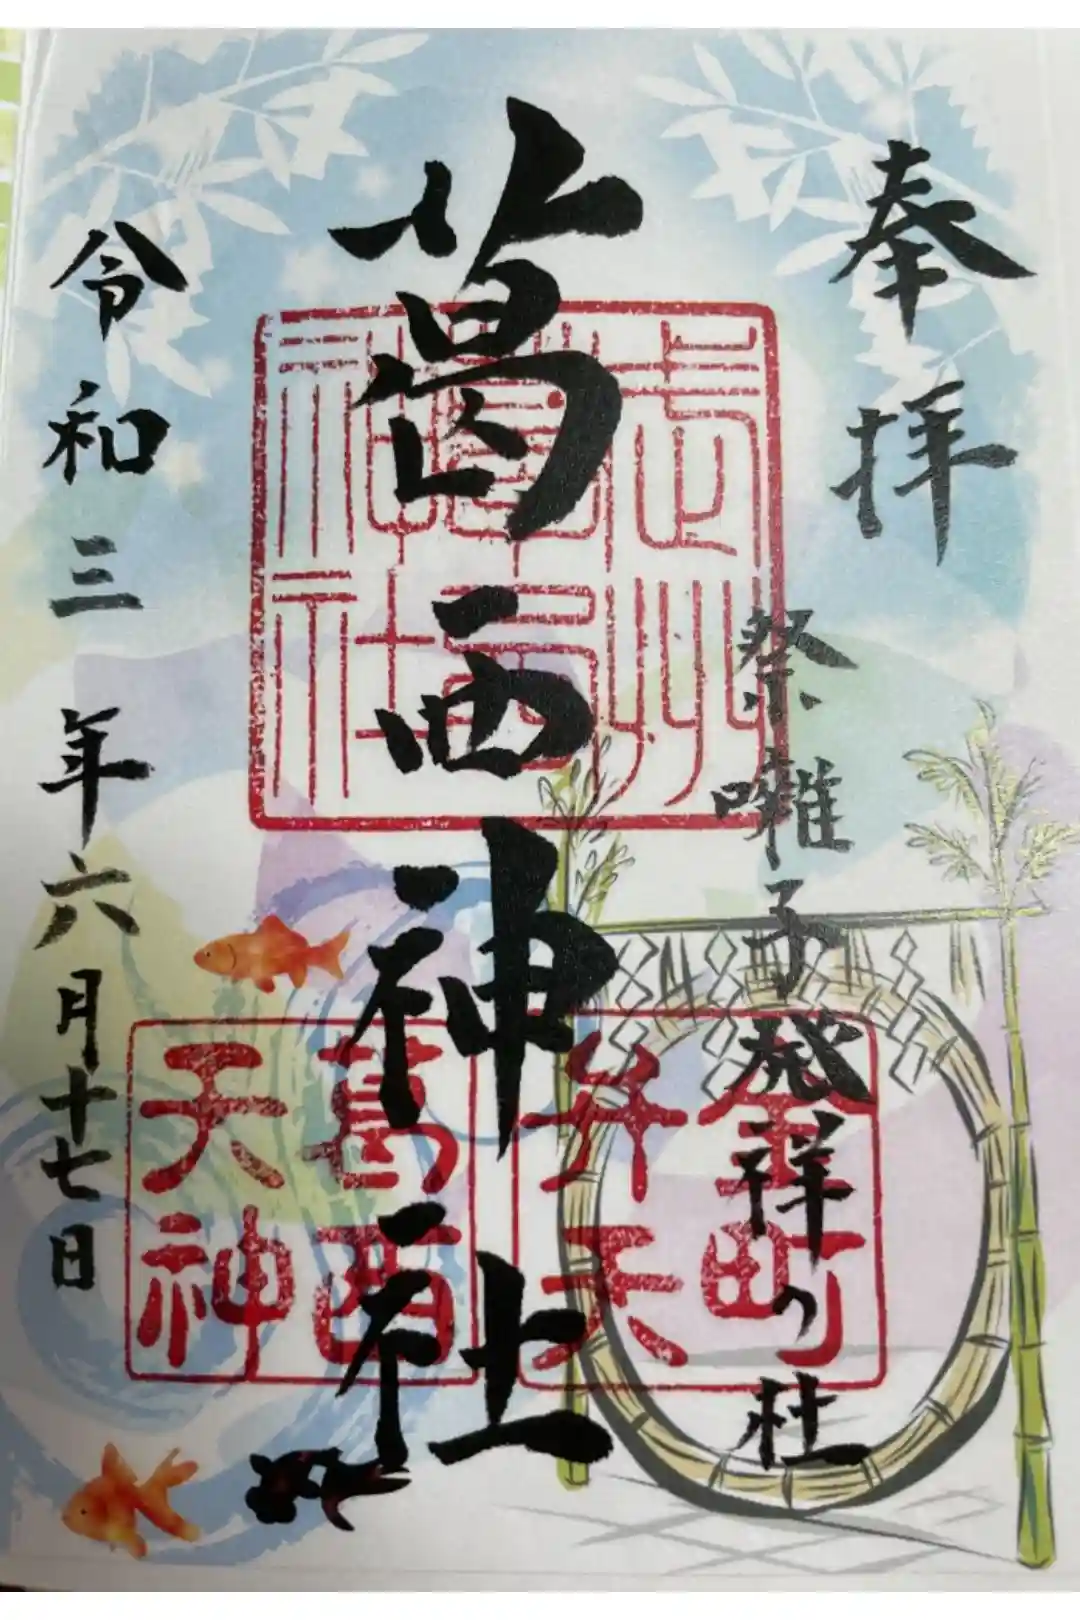 奉拝
祭囃子発祥の杜
葛西神社
令和三年六月十七日
武州
葛西
神社
金町
弁天
葛西
天神